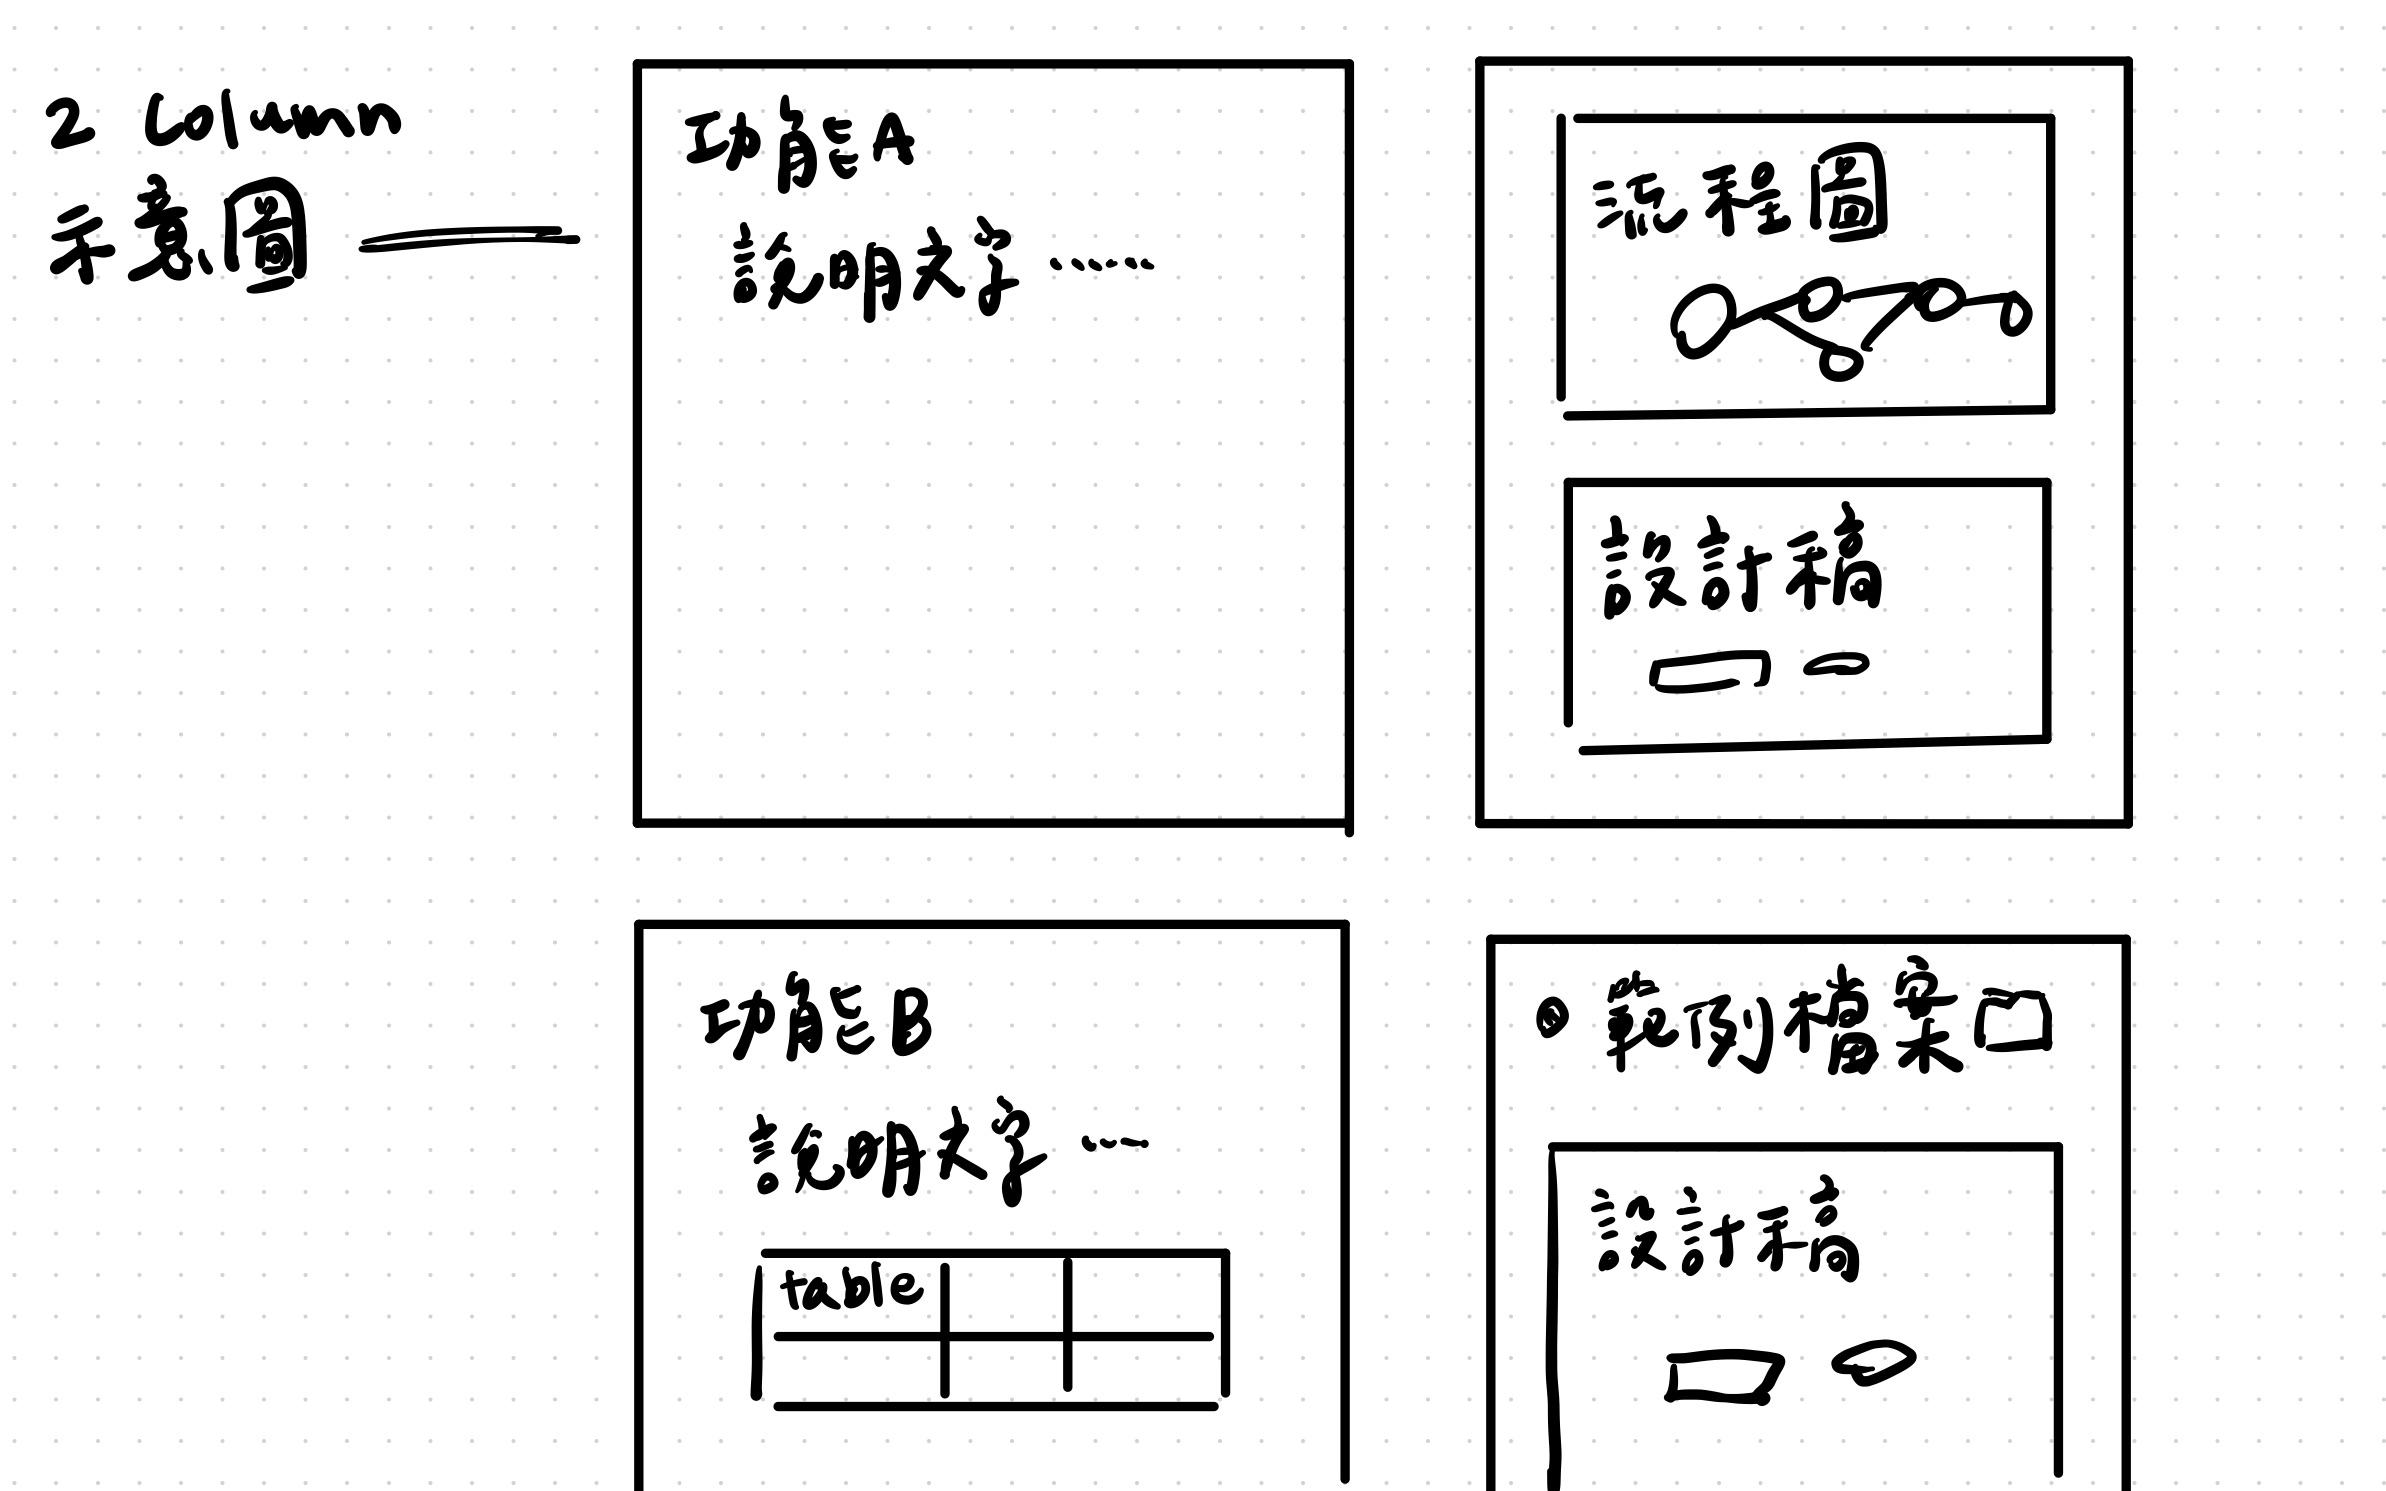 2 Column
示意圖
功能A
說明文字 .....
流程圖
設計稿
功能B
說明文字 ....
table
範例檔案
設計稿